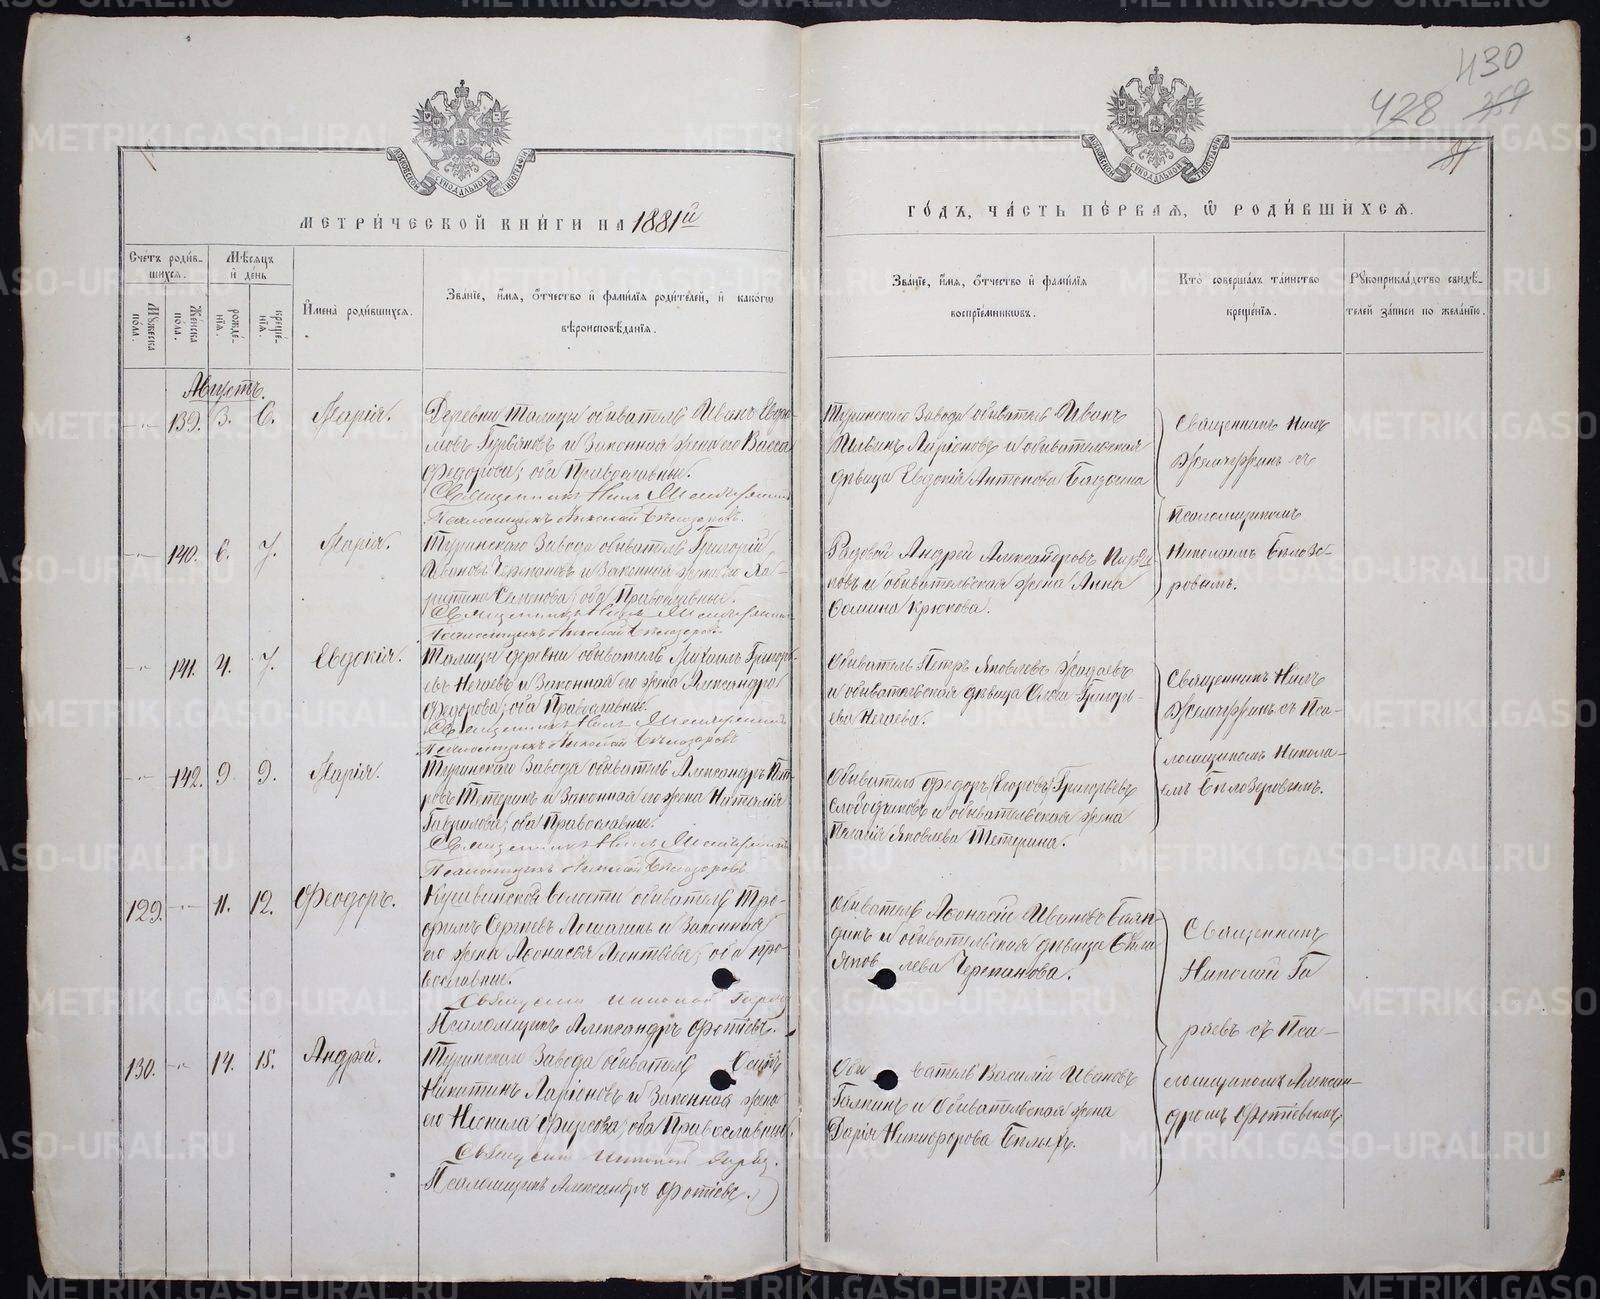 430
428
259
МЕТРИ́ЧЕСКОЙ КНИ́ГИ НА 1881й
ГО́ДЪ, ЧА́СТЬ ПЕ́РВАЯ, Ѡ РОДИ́ВШИХСЯ.
Счетъ роди́в-
шихся.
Мѣ́сяцъ
и́ де́нь
Мꙋжеска по́ла.
Же́нска по́ла.
рожде́-
нїя.
креще́-
нїя.
И́мена̀ роди́вшихся.
Зва́нїе, и́мя, о́тчество и́ фами́лїя роди́телей, и́ како́гѡ
вѣроисповѣ́данїя.
Зва́нїе, и́мя, о́тчество и́ фами́лїя
воспрїе́мникѡвъ.
Кто̀ соверша́лъ та́инство
креще́нїя.
Рꙋкоприкла́дство свидѣ́-
телей за́писи по жела́нїю.
Августъ.
139. 3. 6. Марія.
Деревни Талицы обыватель Иванъ Евдо-
и Законная жена его Васса
Федорова; оба Православные.
Священникъ Нилъ
Псаломщикъ Николай Бѣлозеровъ.
Туринскаго Завода обыватель Иванъ
Ларіоновъ и обывательская
дѣвица Евдокія Антонова
Священникъ Нилъ
съ
псаломщикомъ
Николаемъ Бѣлозе-
ровымъ.
140. 6. 7. Марія.
Туринскаго Завода обыватель Григорій
Ивановъ Черпановъ и Законная жена его Ха-
ритина; оба Православные.
Священникъ Нилъ
Псаломщикъ Николай Бѣлозеровъ.
Рядовой Андрей Александровъ
и обывательская жена Анна
Фомина Крюкова.
141. 4. 7. Евдокія.
Талицы деревни обыватель Михаилъ Григорь-
евъ Нечаевъ и Законная его жена Александра
Федорова; оба Православные.
Священникъ Нилъ
Псаломщикъ Николай Бѣлозеровъ
Обыватель Петръ Яковлевъ
и обывательская дѣвица Григорь-
ева Нечаева.
Священникъ Нилъ
съ Пса-
ломщикомъ Никола-
емъ Бѣлозеровымъ.
142. 9. 9. Марія.
Туринскаго Завода обыватель Александръ Пет-
ровъ Тетеринъ и Законная его жена Наталія
Гаврилова; оба Православные.
Священникъ Нилъ
Псаломщикъ Николай Бѣлозеровъ
Обыватель Федоръ (Егоровъ) Григорьевъ
Слободчиковъ и обывательская жена
Пелагія Яковлева Тетерина.
129. 11. 12. Феодоръ.
Кушвинской волости обыватель Тро-
фимъ Сергѣевъ Лошагинъ и Законная
его жена Афонасья Леонтьева; оба пра-
вославные.
Священникъ Николай
Псаломщикъ Александръ Фотіевъ.
Обыватель Афонасій Ивановъ Баян-
динъ и обывательская дѣвица
Яковлева Черепанова.
Священникъ
Николай Га
ряевъ съ Пса-
ломщикомъ Алексан-
дромъ Фотіевымъ.
130. 14. 15. Андрей.
Туринскаго Завода обыватель Осипъ
Никитинъ Ларіоновъ и Законная жена
его Неонила Фирсова; оба Православные.
Священникъ Николай
Псаломщикъ Александръ Фотіевъ.
Обыватель Василій Ивановъ
Галкинъ и Обывательская жена
Дарія Никифорова Бѣлыхъ.
METRIKI.GASO-URAL.RU